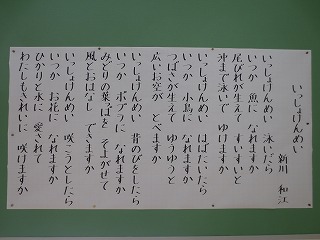 いっしょけんめい
新川 和江
いっしょけんめい 泳いだら
いつか 魚に なれますか
尾びれが生えて すいすいと
沖まで泳いで ゆけますか
いっしょけんめい はばたいたら
いつか 小鳥に なれますか
つばさが生えて ゆうゆうと
広いお空が とべますか
いっしょけんめい 背のびをしたら
いつか ポプラに なれますか
みどりの葉っぱを そよがせて
風とおはなし できますか
いっしょけんめい 咲こうとしたら
いつか お花に なれますか
ひかりと水に 愛されて
わたしもきれいに 咲けますか